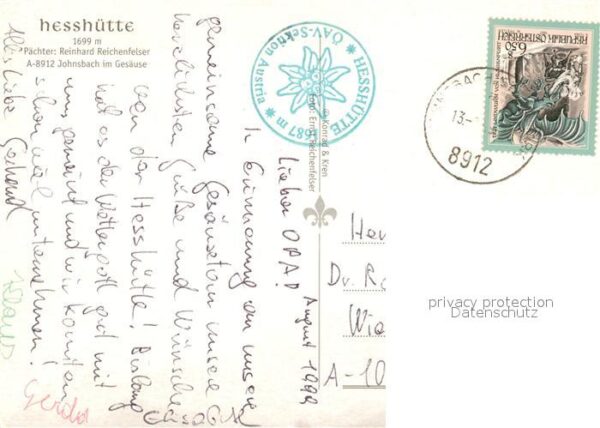 hesshütte
1699 m
Pächter: Reinhard Reichenfelser
A-8912 Johnsbach im Gesäuse
HESSHÜTTE
ÖAV-Sektion Austria
1687 m
Konrad & Kren
Foto: Ernst Reichenfelser
August 1999
Lieber OPA!
In Erinnerung an unsere
gemeinsame Gesäusetour unsere
herzlichsten Grüße und Wünsche
von der Hesshütte! Bislang
hat es der Wettergott gut mit
uns gemeint und wir konnten
schon viel unternehmen!
Alles Liebe Gerhard
Elisabeth
Klaus
Gerda
REPUBLIK ÖSTERREICH
6.50
13.
8912
Dr.
Wie
A-10
privacy protection
Datenschutz